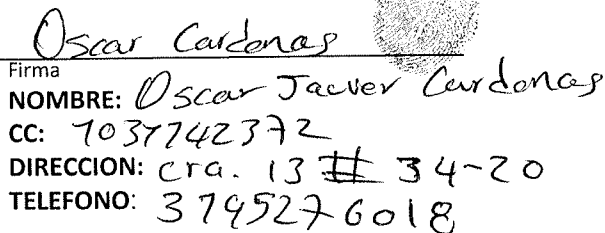 Oscar Cardonas
Firma
NOMBRE: Oscar Jaever Cardonas
CC: 1037742372
DIRECCION: cra. 13 # 34-20
TELEFONO: 3795276018